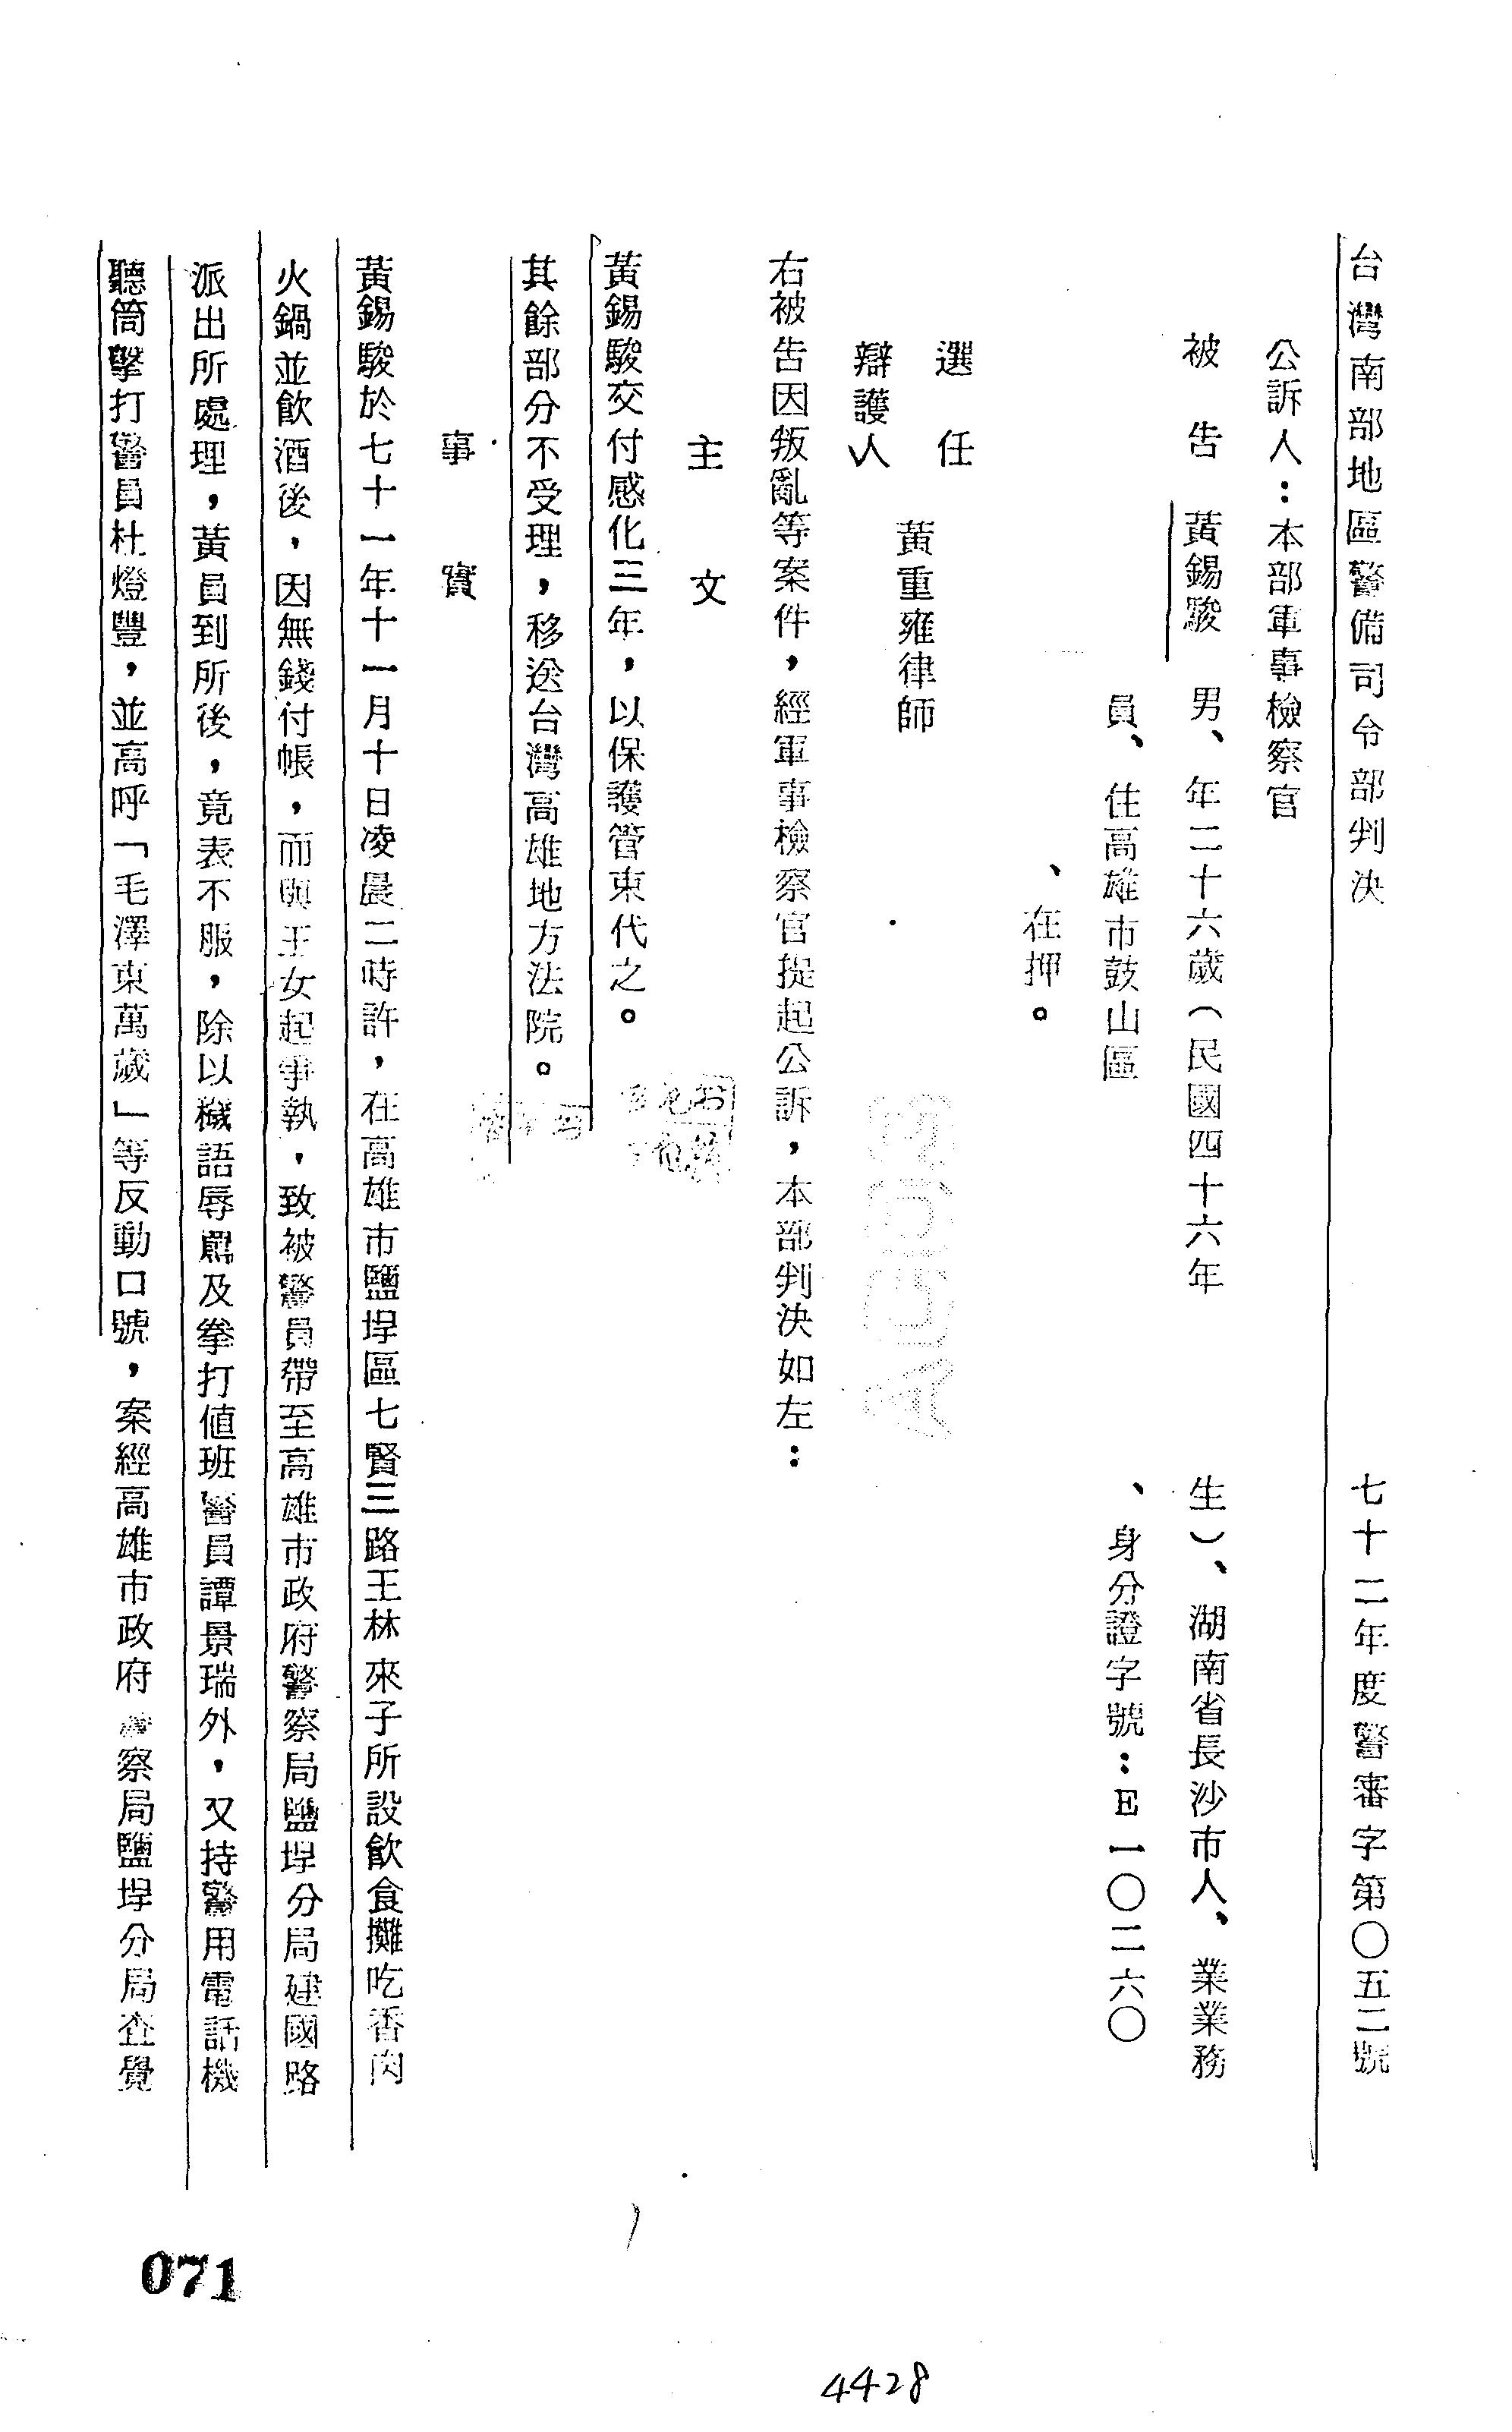 台灣南部地區警備司令部判決　七十二年度警審字第〇五二號
公訴人：本部軍事檢察官
被告　黃錫駿　男、年二十六歲（民國四十六年　生）、湖南省長沙市人、業業務
員、住高雄市鼓山區　、身分證字號：E一〇二六〇
、在押。
選任
辯護人　黃重雍律師
右被告因叛亂等案件，經軍事檢察官提起公訴，本部判決如左：
主文
黃錫駿交付感化三年，以保護管束代之。
其餘部分不受理，移送台灣高雄地方法院。
事實
黃錫駿於七十一年十一月十日凌晨二時許，在高雄市鹽埕區七賢三路王林來子所設飲食攤吃香肉
火鍋並飲酒後，因無錢付帳，而與王女起爭執，致被警員帶至高雄市政府警察局鹽埕分局建國路
派出所處理，黃員到所後，竟表不服，除以穢語辱罵及拳打值班警員譚景瑞外，又持警用電話機
聽筒擊打警員杜燈豐，並高呼「毛澤東萬歲」等反動口號，案經高雄市政府警察局鹽埕分局查覺
071
4428